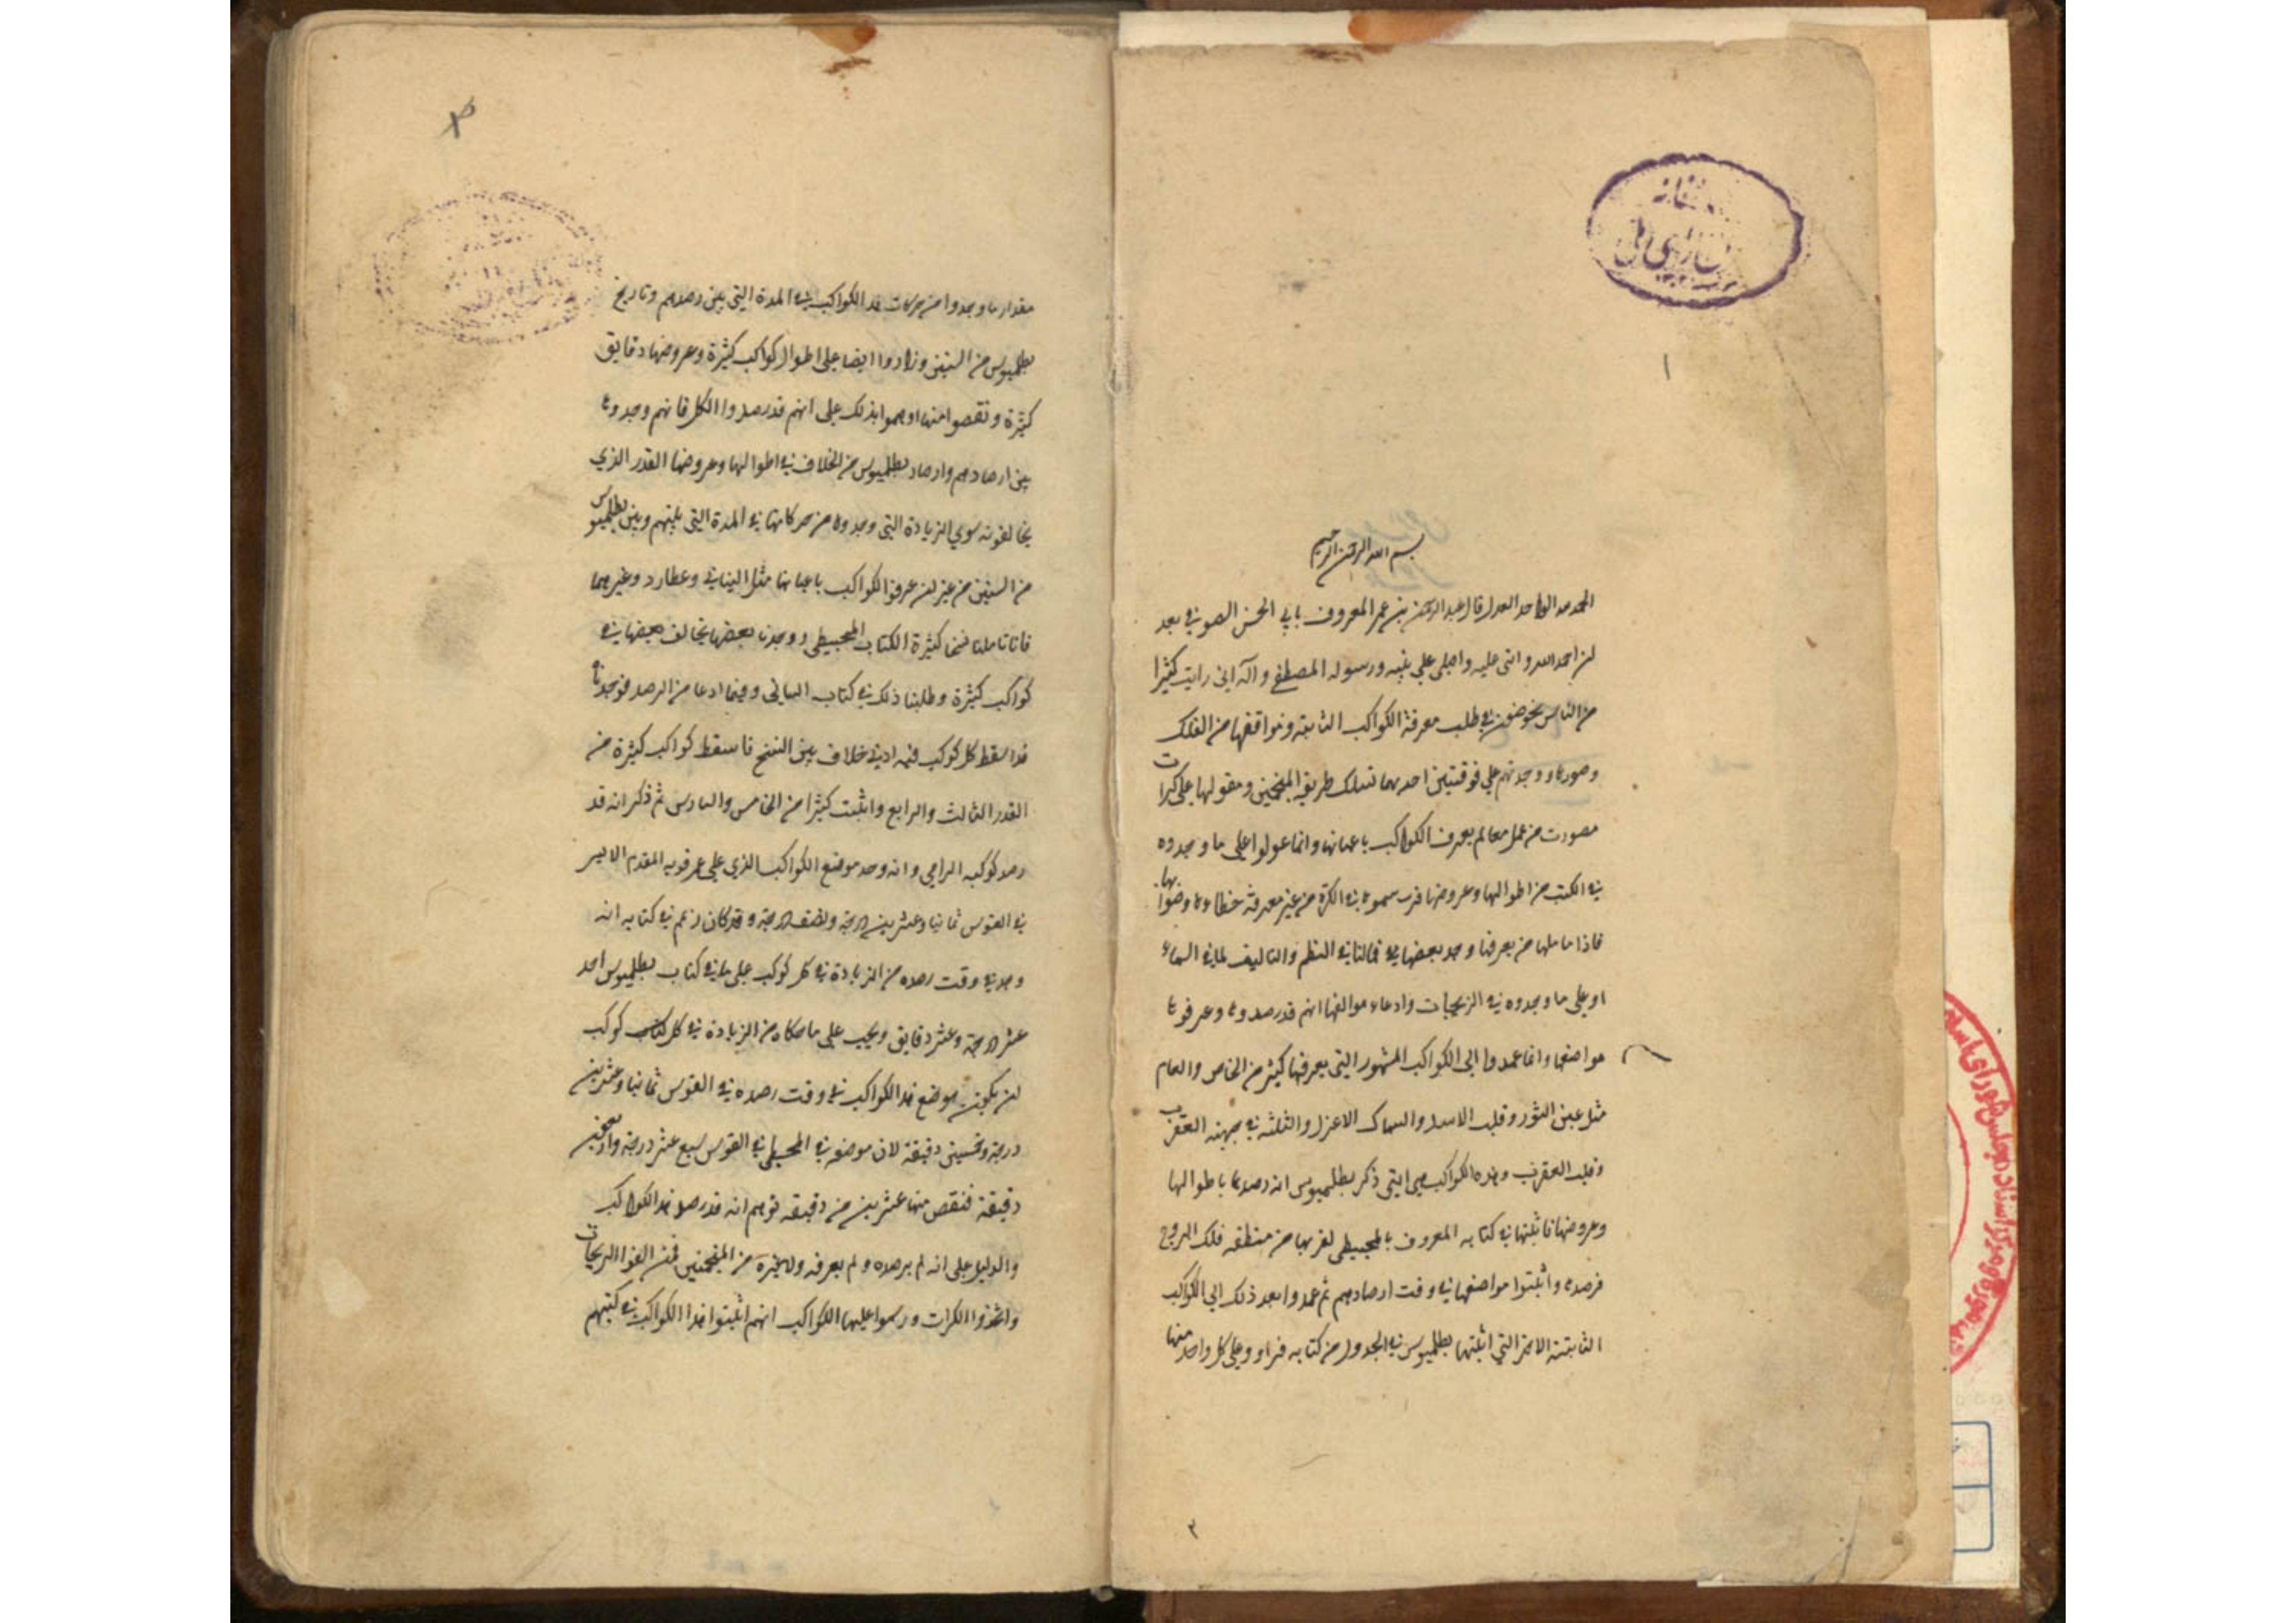 ١
بسم الله الرحمن الرحيم
الحمد لله الواحد العدل قال عبد الرحمن بن عمر المعروف بابي الحسن الصوفي بعد
لن احمد الله واثنى عليه واصلى على نبيه ورسوله المصطفى وآله انى رايت كثيرا
من الناس يخوضون في طلب معرفة الكواكب الثابته ومواقعها من الفلك
وصورها ووجدتهم على فرقتين احدىهما تسلك طريقة المنجمين ومعولها على كرات
مصورت من عمل من لم يعرف الكواكب باعيانها وانما عولوا على ما وجدوه
في الكتب من اطوالها وعروضها فرسموها في الكرة من غير معرفة خطائها وصوابها
فاذا تاملها من يعرفها وجد بعضها مخالفا في النظم والتاليف لما في السماء
او على ما وجدوه في الزيجات وادعاء موالفها انهم قد رصدوها وعرفوها
مواضعها وانما عمدوا الى الكواكب المشهور التي يعرفها كثير من الخاص والعام
مثل عين الثور وقلب الاسد والسماك الاعزل والثلثه في جبهته العقرب
وقلب العقرب وهذه الكواكب هي التي ذكر بطلميوس انه رصدها باطوالها
وعروضها فاثبتها في كتابه المعروف بالمجسطى لقربها من منطقه فلك البروج
فرصدوها واثبتوا مواضعها في وقت ارصادهم ثم عمدوا بعد ذلك الى الكواكب
الثابتة الاخر التي اثبتها بطلميوس في الجدول من كتابه فزادوا على كل واحد منها
٢
مقدار ما وجدوا من حركات هذا الكواكب في المدة التي بين رصدهم وتاريخ
بطلميوس من السنين وزادوا ايضا على اطوال كواكب كثيرة وعروضها دقايق
كثيرة ونقصوا منها اوهموا بذلك على انهم قد رصدوا الكل فانهم وجدوها
بين ارصادهم وارصاد بطلميوس من الخلاف في اطوالها وعروضها القدر الذي
يخالفونه سوى الزيادة التي وجدوها من حركاتها في المدة التي بينهم وبين بطلميوس
من السنين من غير لن عرفوا الكواكب باعيانها مثل البتاني وعطارد وغيرهما
فانا تاملنا نسخا كثيرة الكتاب المجسطى ووجدنا بعضها يخالف بعضها في
كواكب كثيرة وطلبنا ذلك في كتاب البتاني وفيما ادعا من الرصد فوجدناه
قد اسقط كل كوكب فيه ادنى خلاف بين النسخ فاسقط كواكب كثيرة من
القدر الثالث والرابع واثبت كثيرا من الخامس والسادس ثم ذكر انه قد
رصد كوكبه الرامي وانه وجد موضع الكواكب الذي على عرقوبه المقدم الايسر
في القوس ثمانيا وعشرين درجة ونصف درجة وقد كان زعم في كتابه انه
وجد في وقت رصده من الزيادة في كل كوكب على ما في كتاب بطلميوس احد
عشر درجة وعشر دقايق ويجب على ما حكاه من الزيادة في كل كتاب كوكب
لن يكون موضع هذا الكواكب في وقت رصده في القوس ثمانيا وعشرين
درجة وخمسين دقيقة لان موضعه في المجسطى في القوس سبع عشر درجة واربعين
دقيقة فنقص منها عشرين من دقيقه توهم انه قد رصد هذا الكواكب
والدليل على انه لم يرصده ولم يعرفه ولا غيره من المنجمين ممن الفوا الزيجات
واتخذوا الكرات ورسموا عليها الكواكب انهم اثبتوا هذا الكواكب في كتبهم